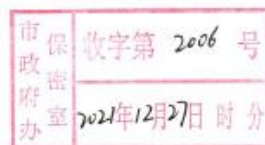 市政府办
保密室
收字第 2006 号
2021年12月27日 时 分